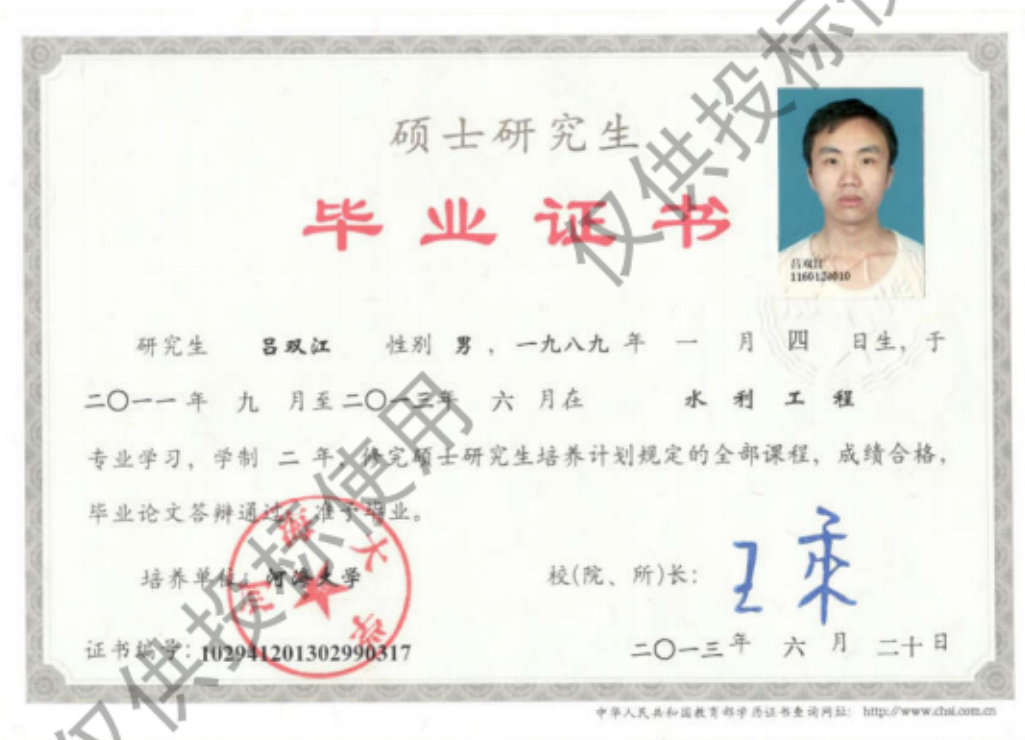 硕士研究生
毕业证书
吕双江
1160120010
研究生 吕双江 性别 男 ，一九八九 年 一 月 四 日生，于
二〇一一 年 九 月至 二〇一三年 六 月在 水利工程
专业学习，学制 二 年，修完硕士研究生培养计划规定的全部课程，成绩合格，
毕业论文答辩通过，准予毕业。
培养单位：河海大学
校(院、所)长：
王乘
证书编号：102941201302990317
二〇一三年 六 月 二十日
河海大学
中华人民共和国教育部学历证书查询网址： http://www.chsi.com.cn
仅供投标使
仅供投标使用